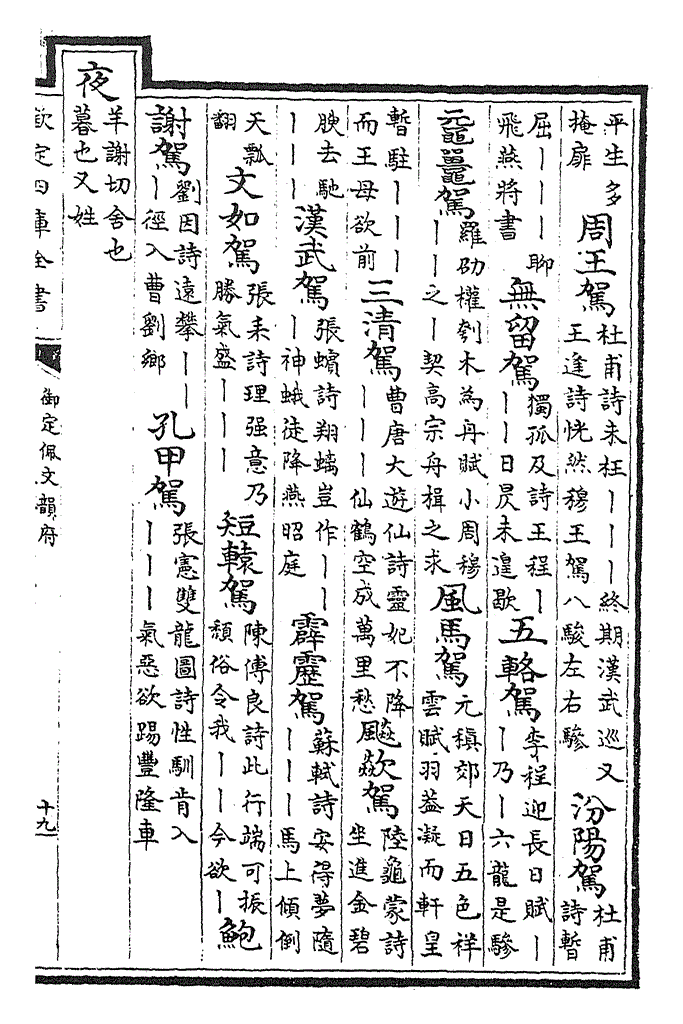 平生多掩扉周王駕杜甫詩未枉｜｜｜終期漢武巡又王逢詩恍然穆王駕八駿左右驂汾陽駕杜甫詩暫
屈｜｜｜聊飛燕將書無留駕獨孤及詩王程｜｜｜日昃未遑歇五輅駕李程迎長日賦｜｜乃｜六龍是驂
黿鼉駕羅劭權刳木為舟賦小周穆｜｜之｜契高宗舟楫之求風馬駕元稹郊天日五色祥雲賦羽葢凝而軒皇
暫駐｜｜｜而王母欲前三清駕曹唐大遊仙詩靈妃不降｜｜｜仙鶴空成萬里愁飈欻駕陸龜蒙詩坐進金碧
腴去馳｜｜｜漢武駕張蠙詩翔螭豈作｜｜｜神蛾徒降燕昭庭霹靂駕蘇軾詩安得夢隨｜｜｜馬上傾倒
天瓢翻文如駕張耒詩理强意乃勝氣盛｜｜｜短轅駕陳傅良詩此行端可振頽俗令我｜｜今欲｜鮑
謝駕劉因詩遠攀｜｜｜徑入曹劉鄉孔甲駕張憲雙龍圖詩性馴肯入｜｜｜氣惡欲踢豐隆車
夜羊謝切舍也暮也又姓
欽定四庫全書
御定佩文韻府
十九